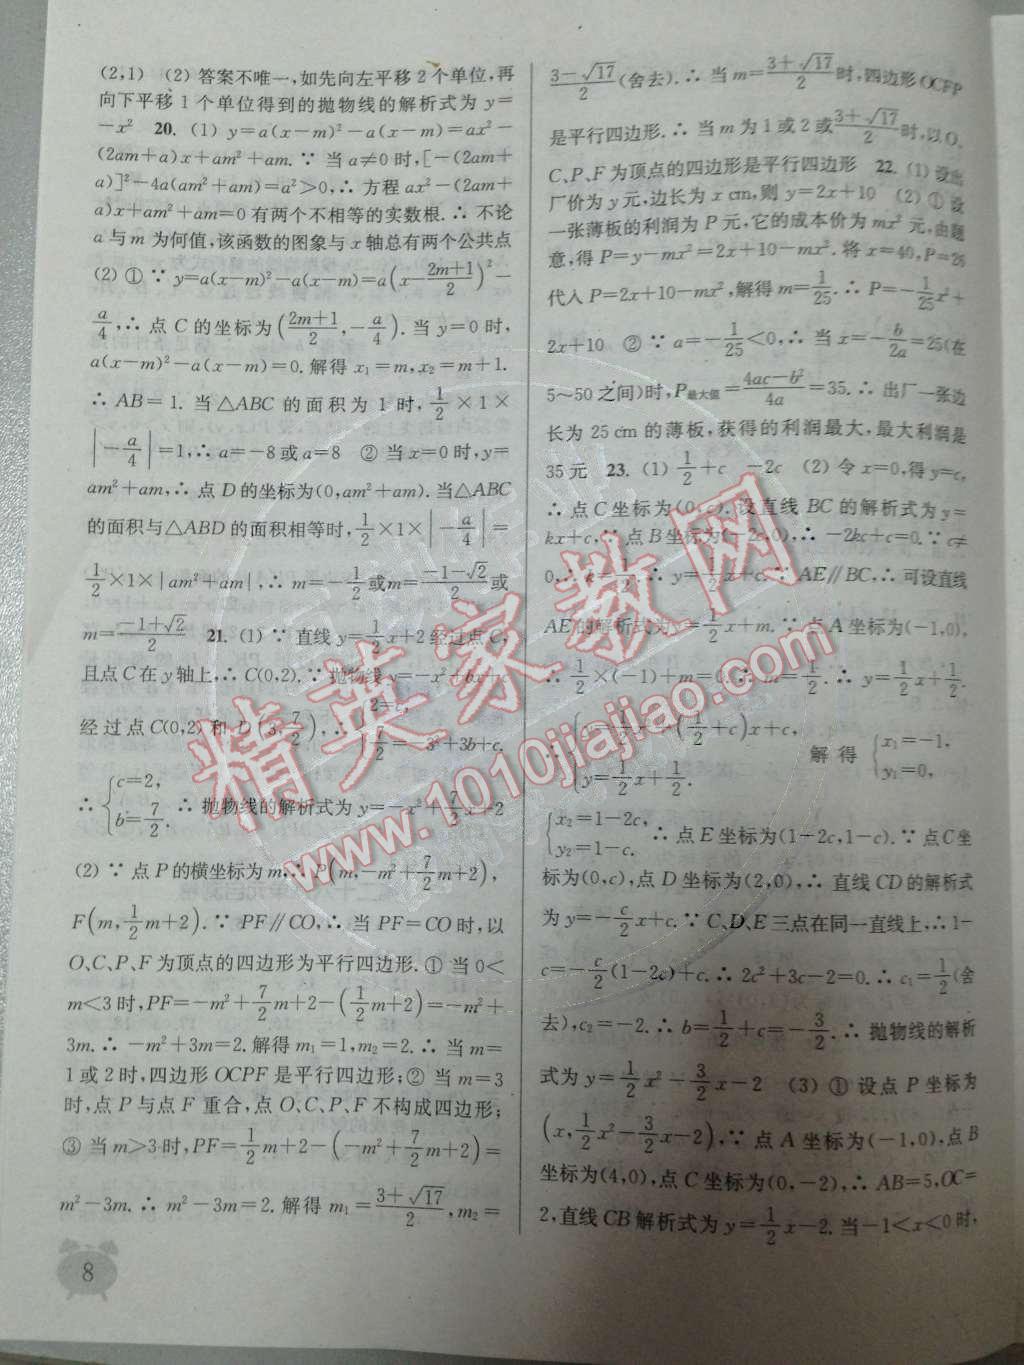 (2,1) (2) 答案不唯一,如先向左平移 2 个单位,再
向下平移 1 个单位得到的抛物线的解析式为 y=
-x² 20. (1) y=a(x-m)²-a(x-m)=ax²-
(2am+a)x+am²+am.∵ 当 a≠0 时,[-(2am+
a)]²-4a(am²+am)=a²>0,∴ 方程 ax²-(2am+
a)x+am²+am=0 有两个不相等的实数根.∴ 不论
a 与 m 为何值,该函数的图象与 x 轴总有两个公共点
(2) ① ∵ y=a(x-m)²-a(x-m)=a(x-\frac{2m+1}{2})²-
\frac{a}{4},∴ 点 C 的坐标为(\frac{2m+1}{2},-\frac{a}{4}).当 y=0 时,
a(x-m)²-a(x-m)=0.解得 x₁=m,x₂=m+1.
∴ AB=1.当△ABC 的面积为 1 时,\frac{1}{2}×1×
|-\frac{a}{4}|=1,∴ a=-8 或 a=8 ② 当 x=0 时,y=
am²+am,∴ 点 D 的坐标为(0,am²+am).当△ABC
的面积与△ABD 的面积相等时,\frac{1}{2}×1×|-\frac{a}{4}|=
\frac{1}{2}×1×|am²+am|,∴ m=-\frac{1}{2}或m=\frac{-1-√2}{2}或
m=\frac{-1+√2}{2} 21. (1) ∵ 直线 y=\frac{1}{2}x+2 经过点 C,
且点 C 在 y 轴上,∴ C(0,2).∵ 抛物线 y=-x²+bx+c
经过点 C(0,2)和 D(3,\frac{7}{2}),∴ {2=c, \frac{7}{2}=-3²+3b+c.
∴ {c=2, b=\frac{7}{2}. ∴ 抛物线的解析式为 y=-x²+\frac{7}{2}x+2
(2) ∵ 点 P 的横坐标为 m,∴ P(m,-m²+\frac{7}{2}m+2),
F(m,\frac{1}{2}m+2).∵ PF∥CO,∴ 当 PF=CO 时,以
O、C、P、F 为顶点的四边形为平行四边形.① 当 0<
m<3 时,PF=-m²+\frac{7}{2}m+2-(\frac{1}{2}m+2)=-m²+
3m.∴ -m²+3m=2.解得 m₁=1,m₂=2.∴ 当 m=
1 或 2 时,四边形 OCPF 是平行四边形;② 当 m=3
时,点 P 与点 F 重合,点 O、C、P、F 不构成四边形;
③ 当 m>3 时,PF=\frac{1}{2}m+2-(-m²+\frac{7}{2}m+2)=
m²-3m.∴ m²-3m=2.解得 m₁=\frac{3+√17}{2},m₂=
8
\frac{3-√17}{2}(舍去).∴ 当 m=\frac{3+√17}{2}时,四边形 OCFP
是平行四边形.∴ 当 m 为 1 或 2 或\frac{3+√17}{2}时,以 O、
C、P、F 为顶点的四边形是平行四边形 22. (1) 设出
厂价为 y 元,边长为 x cm,则 y=2x+10 (2) ① 设
一张薄板的利润为 P 元,它的成本价为 mx² 元,由题
意,得 P=y-mx²=2x+10-mx².将 x=40,P=26
代入 P=2x+10-mx²,解得 m=\frac{1}{25}.∴ P=-\frac{1}{25}x²+
2x+10 ② ∵ a=-\frac{1}{25}<0,∴ 当 x=-\frac{b}{2a}=25(在
5~50 之间)时,P最大值=\frac{4ac-b²}{4a}=35.∴ 出厂一张边
长为 25 cm 的薄板,获得的利润最大,最大利润是
35 元 23. (1) \frac{1}{2}+c -2c (2) 令 x=0,得 y=c,
∴ 点 C 坐标为(0,c).设直线 BC 的解析式为 y=
kx+c,∵ 点 B 坐标为(-2c,0),∴ -2kc+c=0.∵ c≠
0,∴ k=\frac{1}{2}.∴ y=\frac{1}{2}x+c.∵ AE∥BC,∴ 可设直线
AE的解析式为 y=\frac{1}{2}x+m.∵ 点 A 坐标为(-1,0),
∴ \frac{1}{2}×(-1)+m=0.∴ m=\frac{1}{2}.∴ y=\frac{1}{2}x+\frac{1}{2}.
∴ {y=\frac{1}{2}x²+(\frac{1}{2}+c)x+c, y=\frac{1}{2}x+\frac{1}{2}. 解得 {x₁=-1, y₁=0,
{x₂=1-2c, y₂=1-c. ∴ 点 E 坐标为(1-2c,1-c).∵ 点 C 坐
标为(0,c),点 D 坐标为(2,0),∴ 直线 CD 的解析式
为 y=-\frac{c}{2}x+c.∵ C、D、E 三点在同一直线上,∴ 1-
c=-\frac{c}{2}(1-2c)+c.∴ 2c²+3c-2=0.∴ c₁=\frac{1}{2}(舍
去),c₂=-2.∴ b=\frac{1}{2}+c=-\frac{3}{2}.∴ 抛物线的解析
式为 y=\frac{1}{2}x²-\frac{3}{2}x-2 (3) ① 设点 P 坐标为
(x,\frac{1}{2}x²-\frac{3}{2}x-2),∵ 点 A 坐标为(-1,0),点 B
坐标为(4,0),点 C 坐标为(0,-2),∴ AB=5,OC=
2,直线 CB 解析式为 y=\frac{1}{2}x-2.当-1<x<0 时,
精英家教网
www.1010jiajiao.com